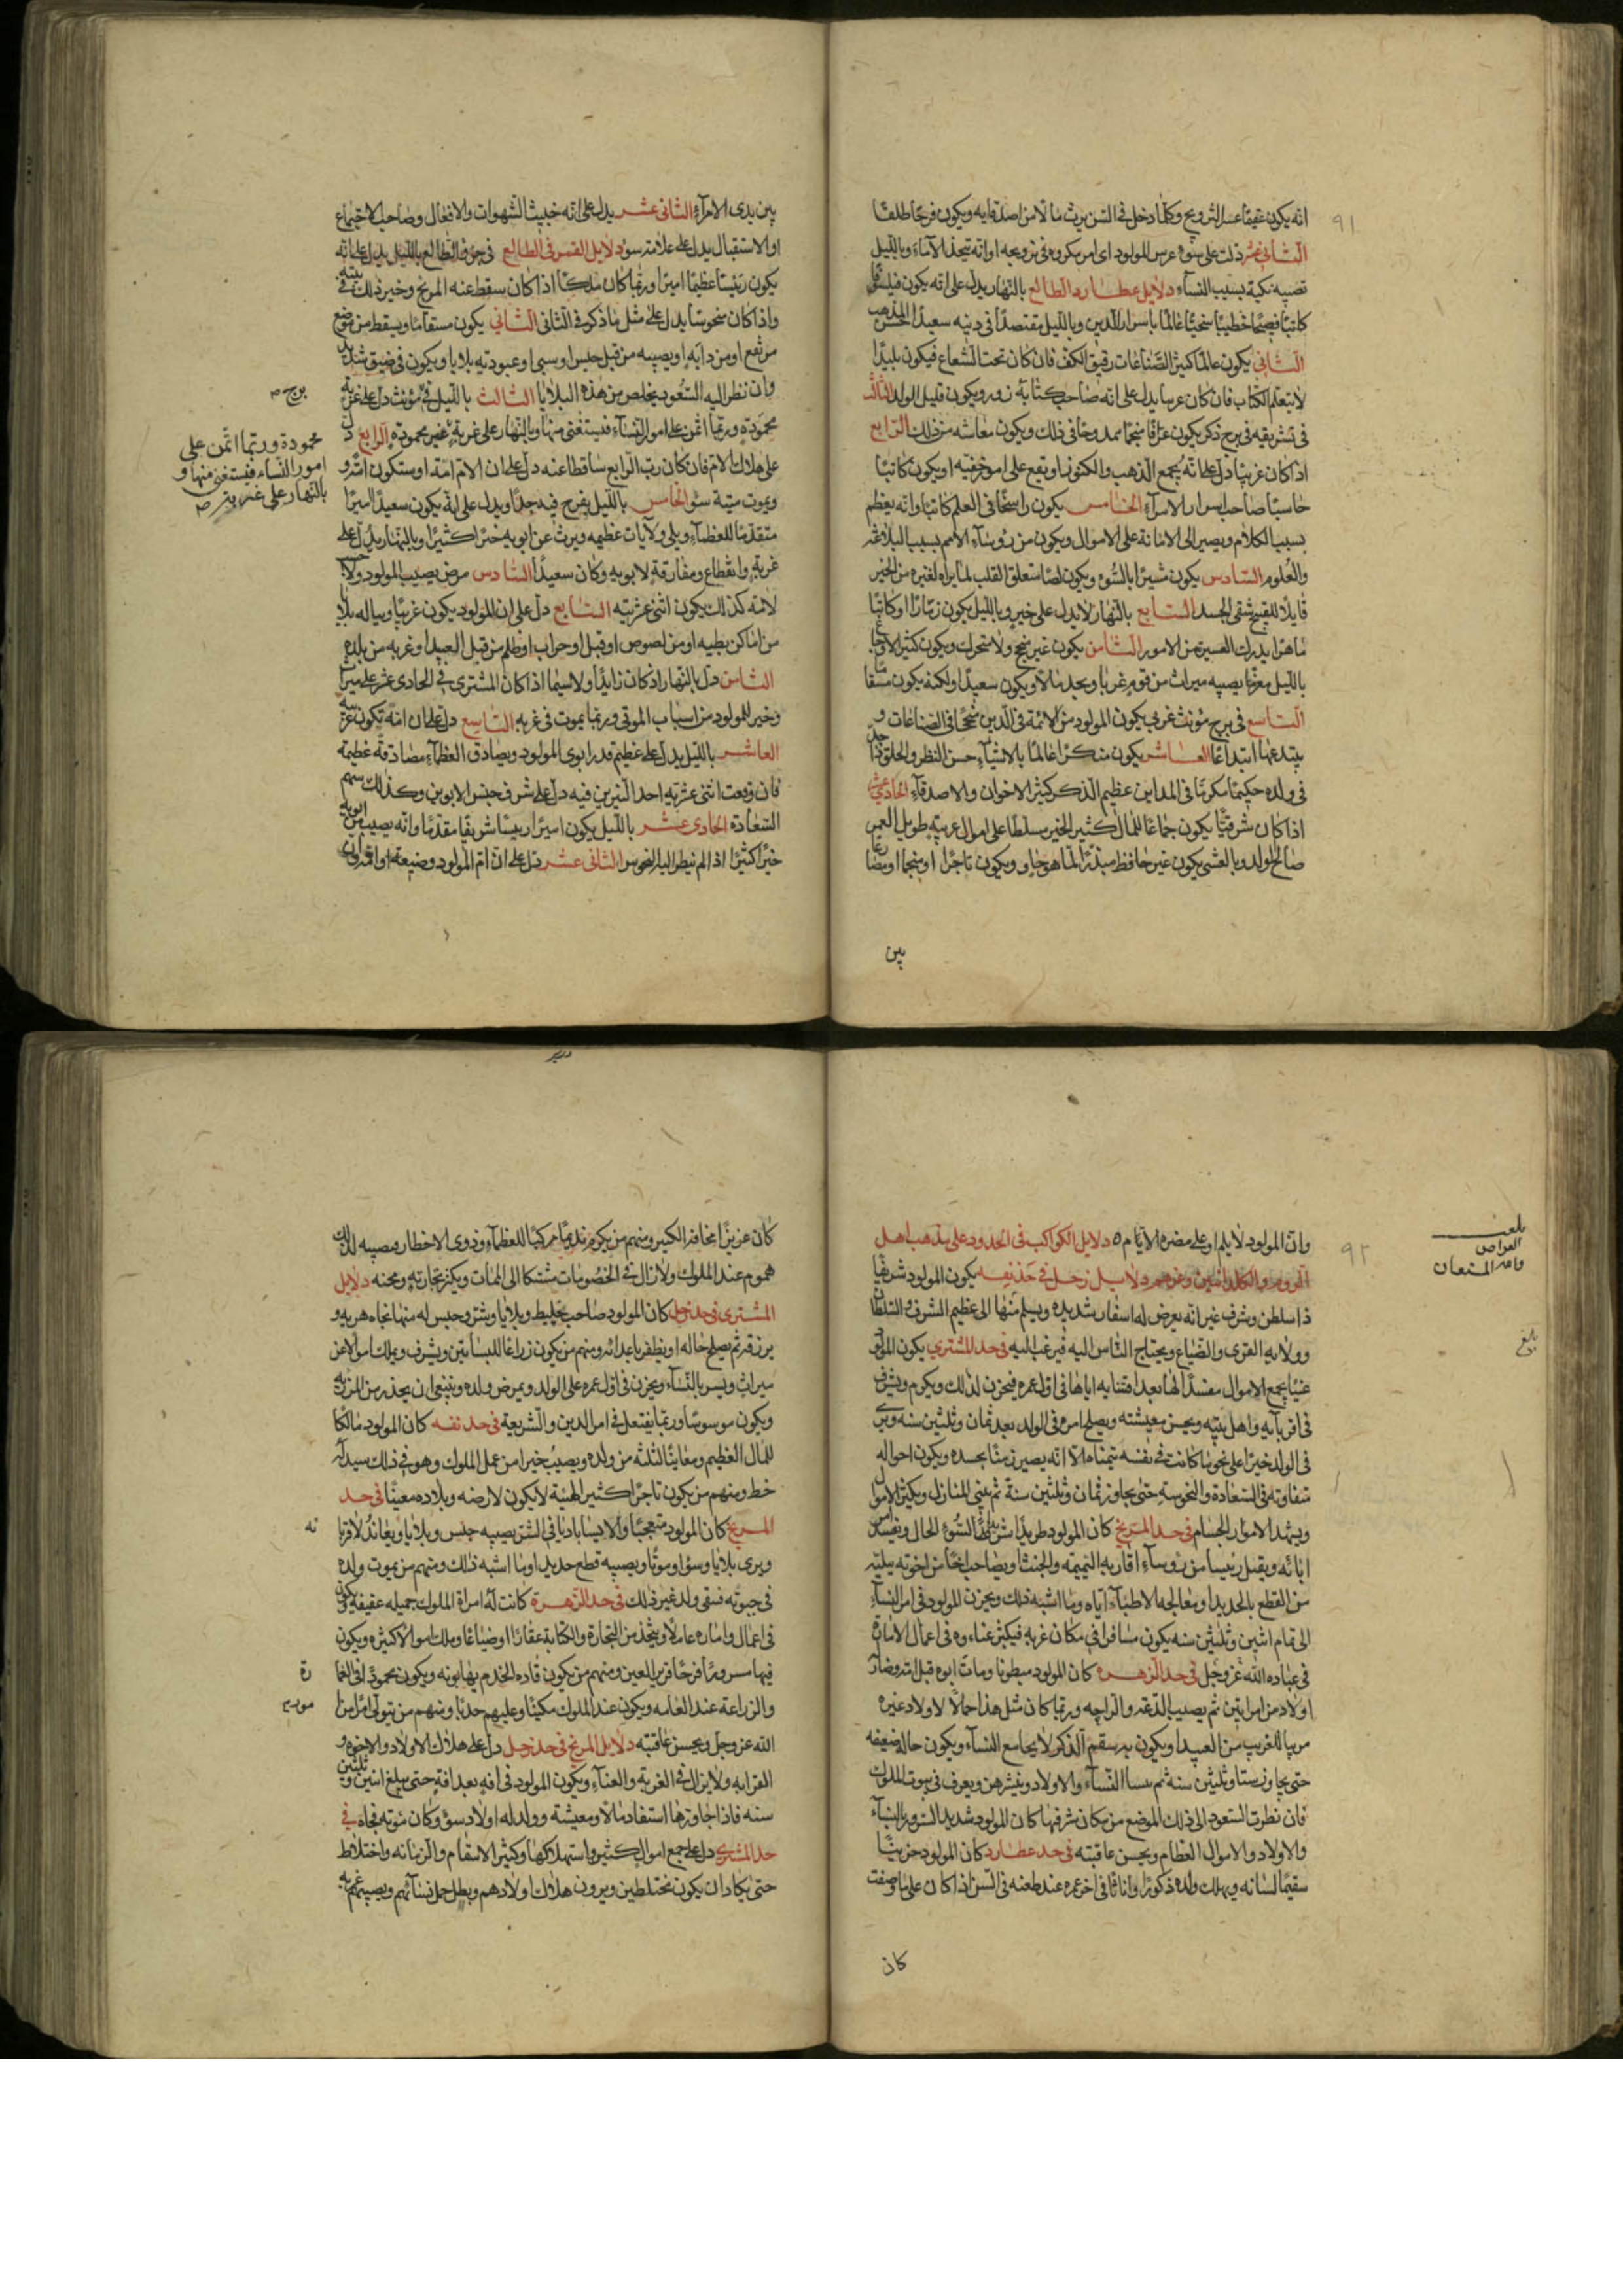 ٩١
انه يكون عفيفا عسر التزويج وكلما دخل في السن يرث مالا من اصدقايه ويكون فرحا طلقا
الثاني عشر دلت على سوء عرس المولود اى امر مكروه في تزويجه او انه يتخذ الاماء وبالليل
تصيبه نكبة بسبب النسآء دلايل عطارد الطالع بالنهار يدل على انه يكون فيلسوفا
كاتبا فصيحا خطيبا سخيا عالما باسرار الدين وبالليل مقتصدا في دينه سعيدا حسن المذهب
الثاني يكون عالما كثير الصناعات رقيق الكف فان كان تحت الشعاع فيكون بليدا
لا يتعلم الكتاب فان كان غربيا يدل على انه صاحب كتابة زور ويكون قليل الولد الثالث
في تشريقه في برج ذكر يكون عرافا منجما ممدوحا في ذلك ويكون معاشه من ذلك الرابع
اذا كان غربيا دل على انه يجمع الذهب والكنوز او يقع على امور خفيه او يكون كاتبا
حاسبا صاحب اسرار الامرآء الخامس يكون راسخا في العلم كاتبا وانه يعظم
بسبب الكلام ويصير الى الامانة على الاموال ويكون من رؤسآء الامم بسبب البلاغة
والعلوم السادس يكون مشيرا بالسوء ويكون لصا متعلق القلب لما يراه لغيره من الخير
قايلا للقبيح شقى الجسد السابع بالنهار لا يدل على خير وبالليل يكون زمارا او كاتبا
ماهرا يدرك العسيرة من الامور الثامن يكون غير منجح ولا متحرك ويكون كثير الاوجاع
بالليل مغربا يصيبه ميراث من قوم غربا ويجد مالا ويكون سعيدا ولكنه يكون مسقاما
التاسع في برج مؤنث غربي يكون المولود من الائمة في الدين منجحا في الصناعات و
يبتدعها ابتداعا العاشر يكون متكبرا عالما بالاشياء حسن النظر والخلق
في ولده حكيما مكرما في المداين عظيم الذكر كثير الاخوان والاصدقآء الحادي عشر
اذا كان شرقيا يكون جماعا للمال كثير الخير مسلطا على اموال غريبة طويل العمر
صالح الولد وبالعشي يكون غير حافظ مبذرا لما هو حاو ويكون تاجرا او منجما او
بين
بين يدى الامرآء الثاني عشر يدل على انه خبيث الشهوات والافعال وصاحب الاجتماع
او الاستقبال يدل على علامة سوء دلايل القمر في الطالع في جوف الطالع بالليل يدل على انه
يكون رئيسا عظيما اميرا وربما كان ملكا اذا كان سقط عنه المريخ وخير ذلك في بيته
واذا كان منحوسا يدل على مثل ما ذكر في الثاني الثاني يكون مسقاما ويسقط من موضع
مرتفع او من دابه او يصيبه من قبل حبس او سبي او عبوديه بلايا ويكون في ضيق شديد
وان نظر اليه السعود يخلص من هذه البلايا الثالث بالليل في مؤنث دل على غربة
محمودة وربما ائتمن على امور النسآء فيستغنى منها وبالنهار على غربة غير محموده الرابع دل
على هلاك الام فان كان رب الرابع ساقطا عنه دل على ان الام امة او ستكون
ويموت ميتة سوء الخامس بالليل يفرح فيه جدا ويدل على انه يكون سعيدا اميرا
متقدما للعظمآء ويلى ولايات عظيمه ويرث عن ابويه خيرا كثيرا وبالنهار يدل على
غربة وانقطاع ومفارقة لابويه وكان سعيدا السادس مرض يصيب المولود
لامه كذلك يكون اثنى عشريته السابع دل على ان المولود يكون غريبا ويناله بلايا
من اماكن بطيه او من لصوص او قتل او حراب او ظلم من قبل العبيد او غربه من بلده
الثامن دل بالنهار اذ كان زايدا ولا سيما اذا كان المشترى في الحادي عشر على ميراث
وخير للمولود من اسباب الموتى وربما يموت في غربه التاسع دل على ان امه تكون غريبه
العاشر بالليل يدل على عظيم قدر ابوى المولود ويصادق العظمآء مصادقة عظيمه
فان وقعت اثنى عشريته احد النيرين فيه دل على شرف جنس الابوين وكذلك سهم
السعادة الحادي عشر بالليل يكون اميرا رييسا شريفا مقدما وانه يصيب من ابويه
خيرا كثيرا اذا لم ينظر اليه النحوس الثاني عشر دل على ان ام المولود وضيعه
برج ص
محمودة وربما ائتمن على
امور النساء فيستغنى منها و
بالنهار على غربة ص
٩٢
وان المولود لا يلم او على مضره الايام ٥ دلايل الكواكب في الحدود على مذهب اهل
الروم والكلدانيين وغيرهم دلايل زحل في حد نفسه يكون المولود شريفا
ذا سلطن وشرف غير انه يعرض له اسفار شديده ويسلم منها الى عظيم الشرف والسلطان
وولايه القرى والضياع ويحتاج الناس اليه فيرغب اليه في حد المشتري يكون المولود
غنيا يجمع الاموال مفسدا لها بعد اقتنايه اياها في اول عمره فيحزن لذلك ويكرم ويشرف
في اقربايه واهل بيته ويحسن معيشته ويصلح امره في الولد بعد ثمان وثلثين سنه ويرى
في الولد خيرا على نحو ما كانت في نفسه يتمناه الا انه يصير زمنا بجسده ويكون احواله
متفاوته في السعادة والنحوسة حتى يجاوز ثمان وثلثين سنة ثم يبني المنازل ويكثر الاموال
ويشهد الامور الجسام في حد المريخ كان المولود طريدا السوء الحال ويفسد
ابائه ويقبل رئيسا من رؤسآء اقاربه النميمه والخبث ويصاحب اخا من اخوته بليه
من القطع بالحديد او معالجه الاطبآء اياه وما اشبه ذلك ويحزن المولود في امر النسآء
الى تمام اثنين وثلثين سنه يكون مسافرا في مكان غربه فيكثر عناءوه في اعمال الامارة
في عباده الله عز وجل في حد الزهره كان المولود مبطونا ومات ابوه قبل
اولاد من امراتين ثم يصيب الدعة والراحه وربما كان مثل هذا حمالا لاولاد غيره
مربيا للغريب من العبيد ويكون به سقم الذكر لا يجامع النسآء ويكون حاله ضعيفه
حتى يجاوز ستا وثلثين سنه ثم النسآء والاولاد وينشر هن ويعرف في بيوت الملوك
فان نظرت السعود الى ذلك الموضع من مكان شرفها كان المولود شديد السرور بالنسآء
والاولاد والاموال العظام ويحسن عاقبته في حد عطارد كان المولود حزينا
سقيما لسانه ويهلك ولده ذكورا واناثا في اخر عمره وعند طعنه في السن اذا كان على ما وصفت
كان
بلغت
والله المستعان
بلغ
كان عزيزا مخافة الكبير ومنهم من يكون نديما مركبا للعظمآء وذوى الاخطار ويصيبه لذلك
هموم عند الملوك ولا زال في الخصومات مشتكا الى الممات ويكثر تجارته ومحنه دلايل
المشترى في حد زحل كان المولود صاحب تخليط وبلايا وشر وحبس له منها نجاه هربه و
يرزقه ثم يصلح حاله او يظفر باعدائه ومنهم من يكون زراعا للبساتين ويشرف ويملك اموالا عن
ميراث ويسر بالنسآء ويحزن في اول عمره على الولد ويمرض ولده وينبغي ان يحذر من
ويكون موسوسا وربما يفتعل في امر الدين والشريعة في حد نفسه كان المولود مالكا
للمال العظيم ومعاينا لثلثه من ولده ويصيب خيرا من عمل الملوك وهو في ذلك سيد
خط ومنهم من يكون تاجرا كثير الهيئة لا يكون لارضه وبلاده معينا في حد
المريخ كان المولود متعجبا والايسا باديا في الشر يصيبه حبس وبلايا ويعاند لاقربا
ويرى بلايا وسوا وموتا ويصيبه قطع حديد او ما اشبه ذلك ومنهم من يموت ولده
في حيوته فسقى ولد غير ذلك في حد الزهرة كانت له امراة الملوك جميله عفيفه ويكون
في اعمال واماره عاملا ويتخذ من التجارة والكتابة عقارا وضياعا ويملك اموالا كثيره ويكون
فيها مسرورا فرحا قرير العين ومنهم من يكون قاده الخدم يهابونه ويكون محمودا في
والزراعة عند العامه ويكون عند الملوك مكينا وعليهم حدبا ومنهم من يتولى امرا من
الله عز وجل ويحسن عاقبته دلايل المريخ في حد زحل دل على هلاك الاولاد والاخوه و
القرابه ولا يزال في الغربة والعناء ويكون المولود في افه بعد افة حتى يبلغ اثنين وثلثين
سنه فاذا جاوزها استفاد مالا ومعيشة وولد له اولاد سوء وكان موته فجاه في
حد المشترى دل على جمع اموال كثير واستهلاكها وكثير الاسقام والزمانه واختلاط
حتى يكاد ان يكون مختلطين ويرون هلاك اولادهم وبطل حمل نسآئهم ويصيبهم غم